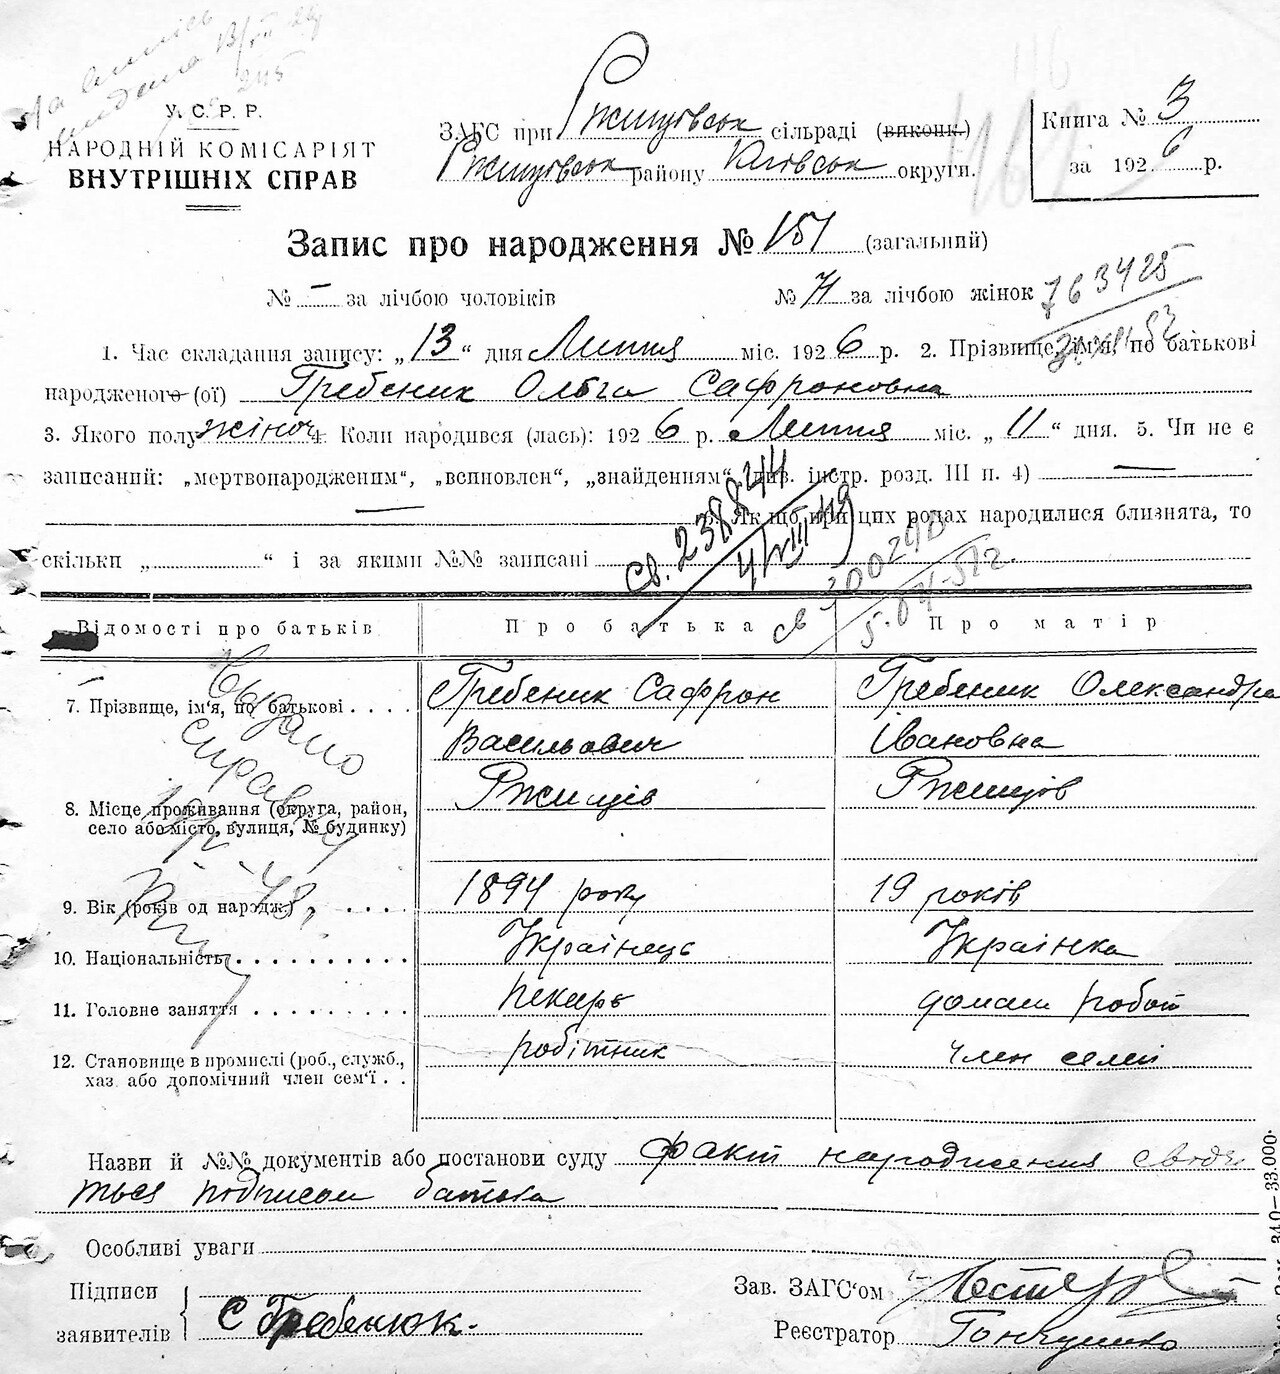 У. С. Р. Р.
НАРОДНІЙ КОМІСАРІЯТ
ВНУТРІШНІХ СПРАВ
ЗАГС при Ржищівськ сільраді (виконк.)
Ржищівськ району Київськ округи.
Книга № 3
за 1926 р.
Запис про народження № 151 (загальний)
№ – за лічбою чоловіків № 71 за лічбою жінок
763425
1. Час складання запису: „13“ дня Липня міс. 1926 р. 2. Прізвище, ім'я, по батькові
народженого (ої) Гребеник Ольга Сафроновна
3. Якого полу жіноч 4. Коли народився (лась): 1926 р. Липня міс. „11“ дня. 5. Чи не є
записаний: „мертвонародженим“, „всиновлен“, „знайденням“ (див. інстр. розд. III п. 4) —
— 6. Як що при цих родах народилися близнята, то
скільки „ “ і за якими №№ записані
св. 238844
4/VIII 49
св 300240
Відомості про батьків Про батька Про матір
7. Прізвище, ім'я, по батькові . . . . Гребеник Сафрон Гребеник Олександра
Васильович Івановна
8. Місце проживання (округа, район, Ржищів Ржищів
село або місто, вулиця, № будинку)
Видано
справку
9. Вік (років од народж.) . . . . . 1894 року 19 років
10. Національність . . . . . . . . . . Українець Українка
11. Головне заняття . . . . . . . . . пекарь домаш робот
12. Становище в промислі (роб., служб., робітник член семї
хаз. або допомічний член сем'ї . .
Назви й №№ документів або постанови суду факт народження сводить
ться подписом батька
Особливі уваги
Підписи
заявителів С Гребенюк.
Зав. ЗАГС'ом
Реєстратор